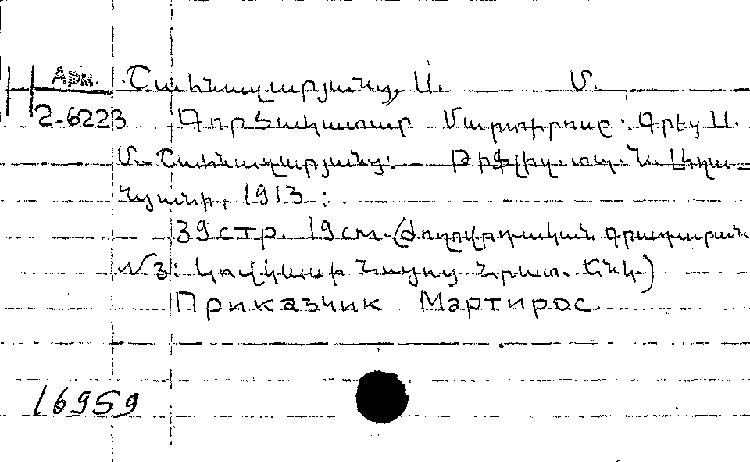 Арм. Շահնազարյանց, Ս. Մ.
2-6223 Գործակատար Մարտիրոսը: Գրէց Ս.
Մ. Շահնազարյանց: Թիֆլիս. տպ. Ն.
1913:
39 стр. 19 см. (Ժողովրդական գրադարան
№ 3: Կովկասի Հայոց Հրատ. Ընկ.)
Приказчик Мартирос.
16959